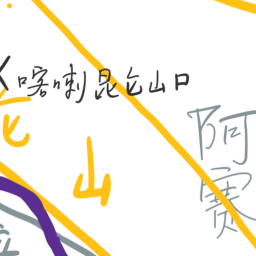 喀喇昆仑山口
仑
山
阿
赛